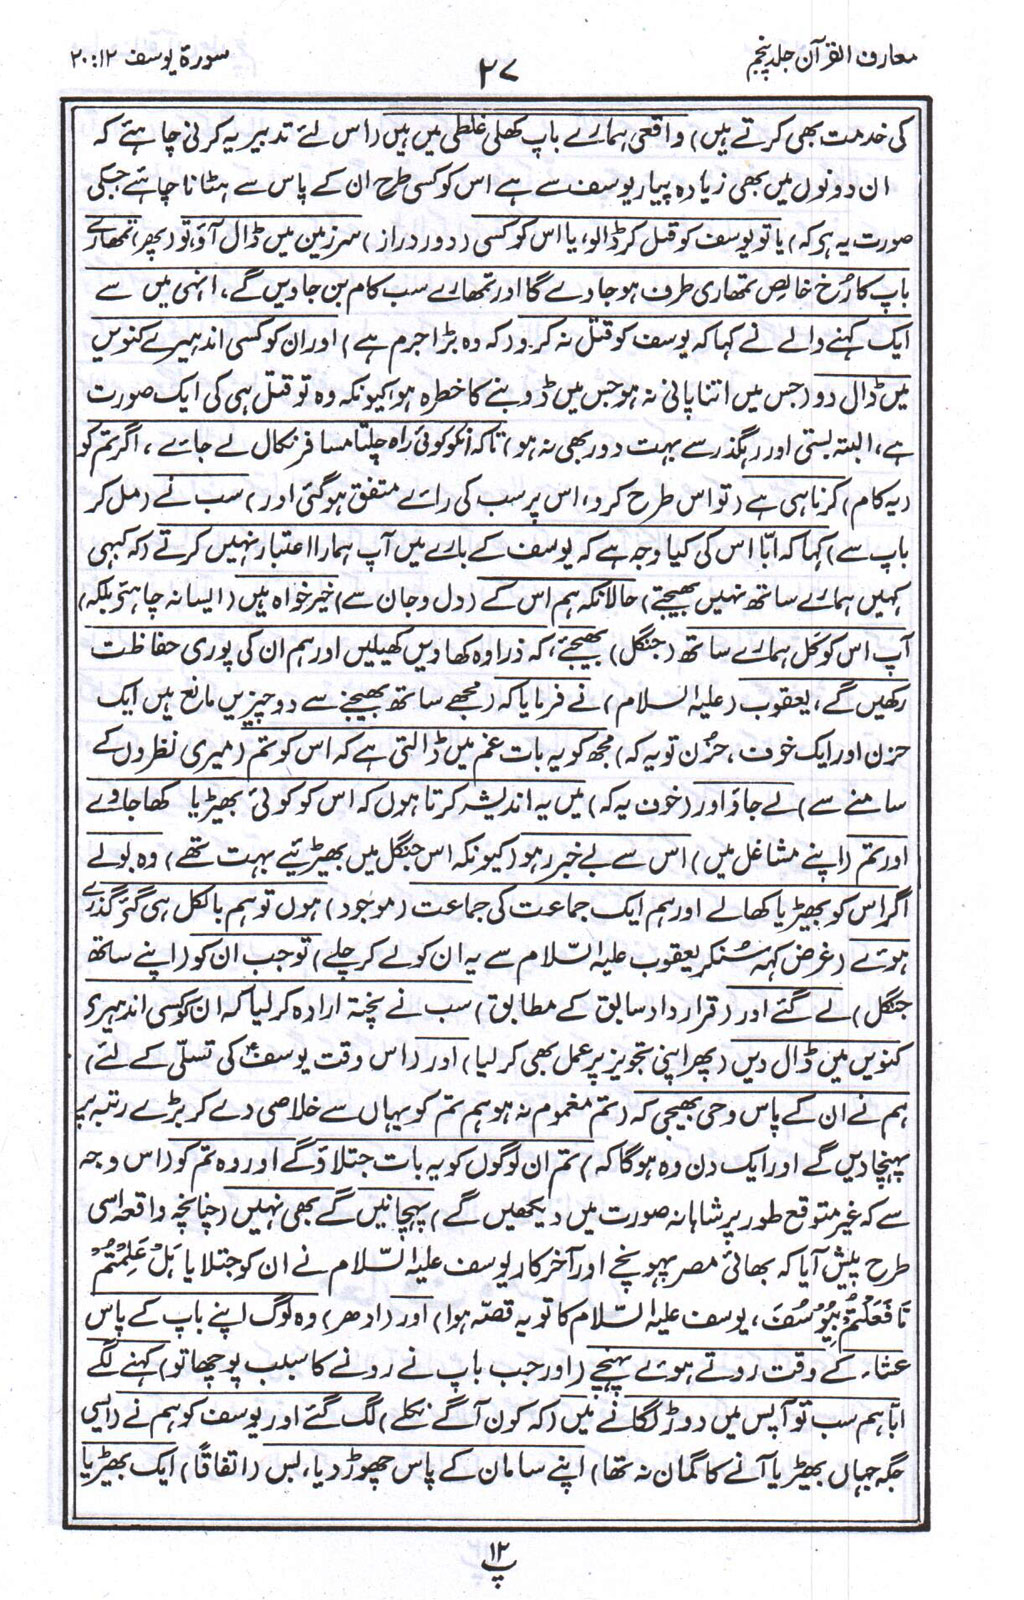 معارف القرآن جلد پنجم
۲۷
سورۃ یوسف ۱۲:۲۰
کی خدمت بھی کرتے ہیں) واقعی ہمارے باپ کھلی غلطی میں ہیں (اس لئے تدبیر یہ کرنی چاہئے کہ
ان دونوں میں بھی زیادہ پیار یوسف سے ہے اس کو کسی طرح ان کے پاس سے ہٹانا چاہئے جسکی
صورت یہ ہو کہ) یا تو یوسف کو قتل کر ڈالو، یا اس کو کسی (دور دراز) سرزمین میں ڈال آؤ، تو (پھر) تمھارے
باپ کا رُخ خالص تمھاری طرف ہو جاوے گا اور تمھارے سب کام بن جاویں گے، انہی میں سے
ایک کہنے والے نے کہا کہ یوسف کو قتل نہ کرو (کہ وہ بڑا جرم ہے) اور ان کو کسی اندھیرے کنویں
میں ڈال دو (جس میں اتنا پانی نہ ہو جس میں ڈوبنے کا خطرہ ہو، کیونکہ وہ تو قتل ہی کی ایک صورت
ہے، البتہ بستی اور رہگذر سے بہت دور بھی نہ ہو) تاکہ انکو کوئی راہ چلتا مسافر نکال لے جائے، اگر تم کو
(یہ کام) کرنا ہی ہے (تو اس طرح کرو، اس پر سب کی رائے متفق ہو گئی اور) سب نے (مل کر
باپ سے) کہا کہ ابّا اس کی کیا وجہ ہے کہ یوسف کے بارے میں آپ ہمارا اعتبار نہیں کرتے (کہ کبھی
کہیں ہمارے ساتھ نہیں بھیجتے) حالانکہ ہم اس کے (دل و جان سے) خیر خواہ ہیں (ایسا نہ چاہئے بلکہ)
آپ اس کو کل ہمارے ساتھ (جنگل) بھیجئے، کہ ذرا وہ کھاویں کھیلیں اور ہم ان کی پوری حفاظت
رکھیں گے، یعقوب (علیہ السلام) نے فرمایا کہ (مجھے ساتھ بھیجنے سے دو چیزیں مانع ہیں ایک
حزن اور ایک خوف، حزن تو یہ کہ) مجھ کو یہ بات غم میں ڈالتی ہے کہ اس کو تم (میری نظروں کے
سامنے سے) لے جاؤ اور (خوف یہ کہ) میں یہ اندیشہ کرتا ہوں کہ اس کو کوئی بھیڑیا کھا جاوے
اور تم (اپنے مشاغل میں) اس سے بے خبر رہو (کیونکہ اس جنگل میں بھیڑئیے بہت تھے) وہ بولے
اگر اس کو بھیڑیا کھالے اور ہم ایک جماعت کی جماعت (موجود) ہوں تو ہم بالکل ہی گئے گذرے
ہوئے (غرض کہہ سُنکر یعقوب علیہ السّلام سے یہ ان کو لے کر چلے) تو جب ان کو (اپنے ساتھ
جنگل) لے گئے اور (قرارداد سابق کے مطابق) سب نے پختہ ارادہ کر لیا کہ ان کو کسی اندھیرے
کنویں میں ڈال دیں (پھر اپنی تجویز پر عمل بھی کر لیا) اور (اس وقت یوسفؑ کی تسلّی کے لئے)
ہم نے ان کے پاس وحی بھیجی کہ (تم مغموم نہ ہو ہم تم کو یہاں سے خلاصی دے کر بڑے رتبہ پر
پہنچا دیں گے اور ایک دن وہ ہوگا کہ) تم ان لوگوں کو یہ بات جتلاؤ گے اور وہ تم کو (اس وجہ
سے کہ غیر متوقع طور پر شاہانہ صورت میں دیکھیں گے) پہچانیں گے بھی نہیں (چنانچہ واقعہ اسی
طرح پیش آیا کہ بھائی مصر پہونچے اور آخرکار یوسف علیہ السّلام نے ان کو جتلایا ھَلْ عَلِمْتُمْ
مَّا فَعَلْتُمْ بِیُوْسُفَ، یوسف علیہ السّلام کا تو یہ قصّہ ہوا) اور (ادھر) وہ لوگ اپنے باپ کے پاس
عشاء کے وقت روتے ہوئے پہنچے (اور جب باپ نے رونے کا سبب پوچھا تو) کہنے لگے
ابّا ہم سب تو آپس میں دوڑ لگانے میں (کہ کون آگے نکلے) لگ گئے اور یوسف کو ہم نے (ایسی
جگہ جہاں بھیڑیا آنے کا گمان نہ تھا) اپنے سامان کے پاس چھوڑ دیا، بس (اتفاقاً) ایک بھیڑیا
۱۲
پ